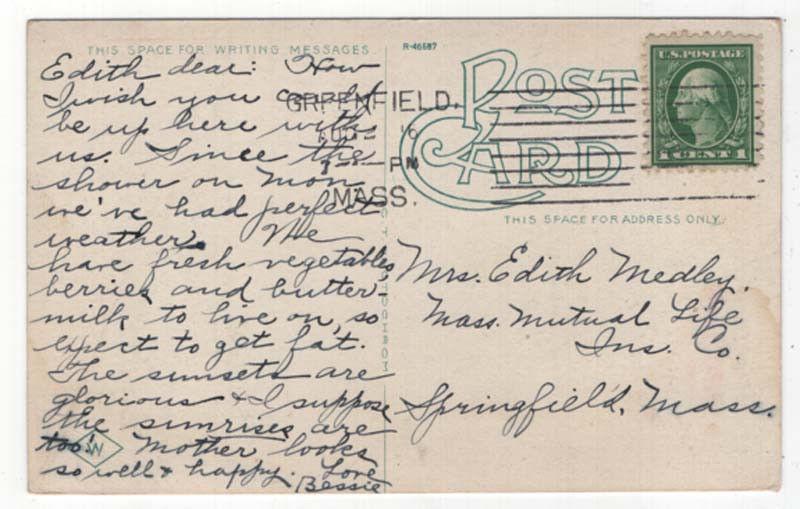 THIS SPACE FOR WRITING MESSAGES
R-46687
POST CARD
U.S. POSTAGE
1 CENT 1
GREENFIELD,
16
PM
MASS.
THIS SPACE FOR ADDRESS ONLY.
Edith dear: How
I wish you could
be up here with
us. Since the
shower on Mon
we've had perfect
weather. We
have fresh vegetables
berries and butter-
milk to live on, so
expect to get fat.
The sunsets are
glorious & I suppose
the sunrises are
too! Mother looks
so well & happy. Love
Bessie
W
Mrs. Edith Medley,
Mass. Mutual Life
Ins. Co.
Springfield, Mass.